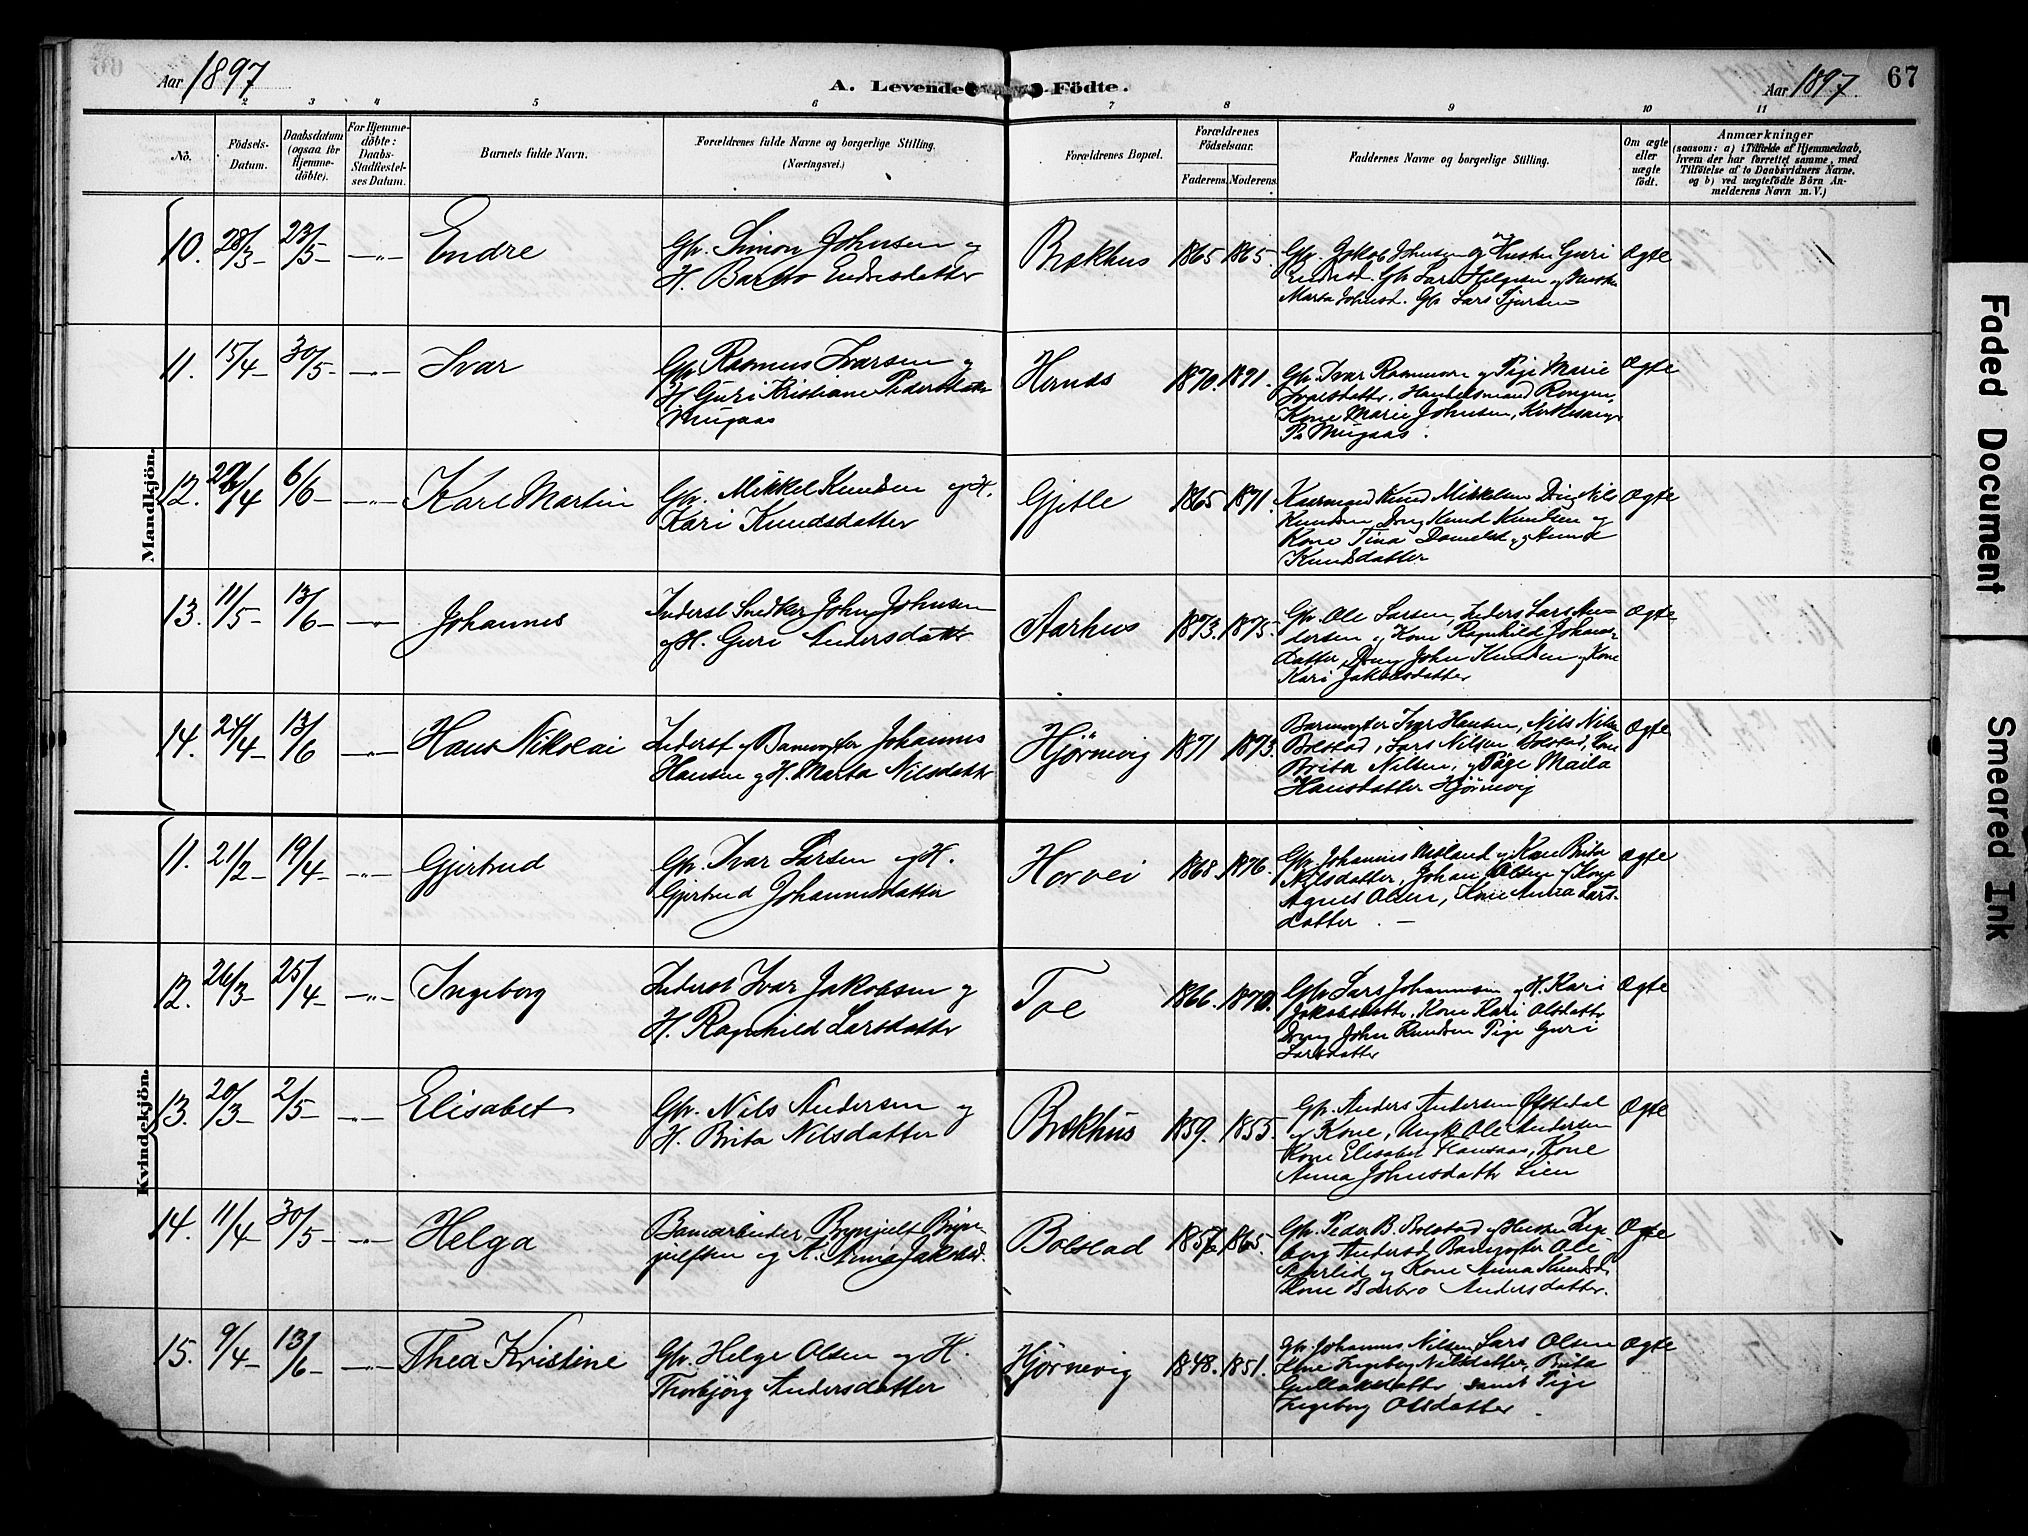 Aar 1897
A. Levende Födte.
Aar 1897. 67
1 2 3 4 5 6 7 8 9 10 11
No.
Födsels-
Datum.
Daabsdatum
(ogsaa for
Hjemme-
döbte).
For Hjemme-
döbte:
Daabs-
Stadfæstel-
ses Datum.
Barnets fulde Navn.
Forældrenes fulde Navne og borgerlige Stilling.
(Næringsvei.)
Forældrenes Bopæl.
Forældrenes
Födselsaar.
Faderens. Moderens.
Faddernes Navne og borgerlige Stilling.
Om ægte
eller
uægte
födt.
Anmærkninger
(saasom: a) i Tilfælde af Hjemmedaab,
hvem der har forrettet samme, med
Tilföielse af to Daabsvidners Navne,
og b) ved uægtefödte Börn An-
melderens Navn m. V.)
Mandkjön.
10. 28/3 23/5 Endre
Gbr. Simon Johnsen og
H. Barbro Endresdatter
Brækhus 1865 1865.
Gbr. Jakob Johnsen og Hustru Guri
Endresd. Gbr Lars Helgesen og Hustru
Marta Johnsd. Gbr Lars
Ægte
11. 15/4 30/5 Ivar
Gbr Rasmus Ivarsen og
H Guri Kristiane Pedersdatter
Mugaas
Hernes 1870. 1871.
Gbr. Ivar Rasmussen og Pige Marie
Ivarsdatter. Handelsmand Rongen,
Kone Marie Johnsen, Kirkesanger
P. Mugaas.
Ægte
12. /4 6/6 Karl Martin
Gbr. Mikkel Knudsen og H.
Kari Knudsdatter
Gjelle 1865 1871.
Kaarmand Knud Mikkelsen Dreng Nils
Knudsen Dreng Knud Knudsen og
Kone Tina Danielsd. og
Knudsdatter
Ægte
13. 11/5 13/6 Johannes
Inderst Snedker John Johnsen
og H. Guri Andersdatter
Aarhus 1873. 1875.
Gbr. Ole Larsen, Inders Lars An-
dersen og Kone Ragnhild Johans-
datter, Dreng John Knudsen og Kone
Kari Jakobsdatter
Ægte
14. 24/4 13/6 Hans Nikolai
Inderst og Banevogter Johannes
Hansen og H. Marta Nilsdatter
Hjørnevig 1871 1873.
Banevogter Ivar Hansen, Nils Nils
Bolstad, Lars Nilsen Bolstad, Kone
Brita Nilsen, og Pige Maila
Hansdatter Hjørnevig
Ægte
Kvindekjön.
11. 21/2 19/4 Gjertrud
Gbr. Ivar Larsen og H.
Gjertrud Johannesdatter
Horvei 1868. 1876.
Gbr. Johannes Mæland og Kone Brita
Nilsdatter, Johan Olsen og Kone
Agnes Olsen, Kone Anna Lars-
datter.
Ægte
12. 26/3 25/4 Ingeborg
Inderst Ivar Jakobsen og
H. Ragnhild Larsdatter
Toe 1866. 1870.
Gbr Lars Johannesen og H. Kari
Jakobsdatter, Kone Kari Olsdatter
Dreng John Knudsen Pige Guri
Larsdatter
Ægte
13. 20/3 2/5 Elisabet
Gbr. Nils Andersen og
H. Brita Nilsdatter
Brækhus 1859. 1855.
Gbr. Anders Andersen
og Kone, Ungk Ole Andersen
Kone Elisabet Flansaas, Kone
Anna Johnsdatter Lien
Ægte
14. 11/4 30/5 Helga
Banearbeider Brynjulf Bryn-
julfsen og H. Anna Jakobsd.
Bolstad 1857 1865.
Gbr. Peder B. Bolstad og Hustru Inge-
borg Andersd Banevogter Ole
og Kone Anna Knudsd
Kone Barbro Andersdatter.
Ægte
15. 9/4 13/6 Thea Kristine
Gbr. Helge Olsen og H.
Thorbjörg Andersdatter
Hjørnevig 1848. 1851.
Gbr. Johannes Nilsen, Lars Olsen
Kone Ingeborg Nilsdatter, Brita
Gullaksdatter samt Pige
Ingeborg Olsdatter.
Ægte
Faded Document
Smeared Ink